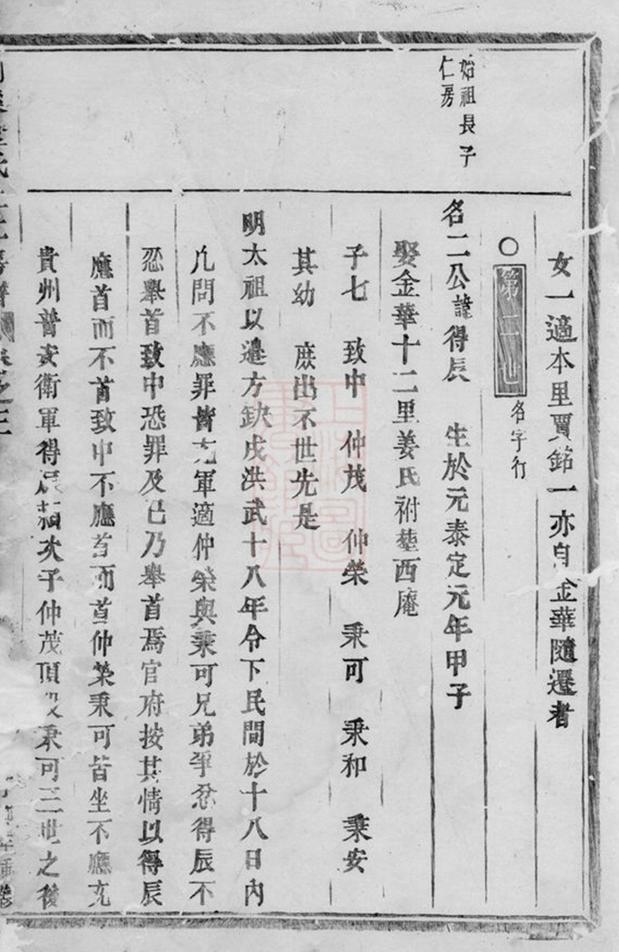 始祖長子
仁房
女一適本里賈銘一亦自金華隨遷者
○第二世
名字行
名二公諱得辰 生於元泰定元年甲子
娶金華十二里姜氏祔塟西庵
子七 致中 仲茂 仲榮 秉可 秉和 秉安
其幼 庶出不世先是
明太祖以邊方缺戍洪武十八年令下民間於十八日內
凡問不應罪皆充軍適仲榮與秉可兄弟爭忿得辰不
忍舉首致中恐罪及已乃舉首焉官府按其情以得辰
應首而不首致中不應首而首仲榮秉可皆坐不應充
貴州普安衛軍得辰
次子仲茂頂
秉可三世之後